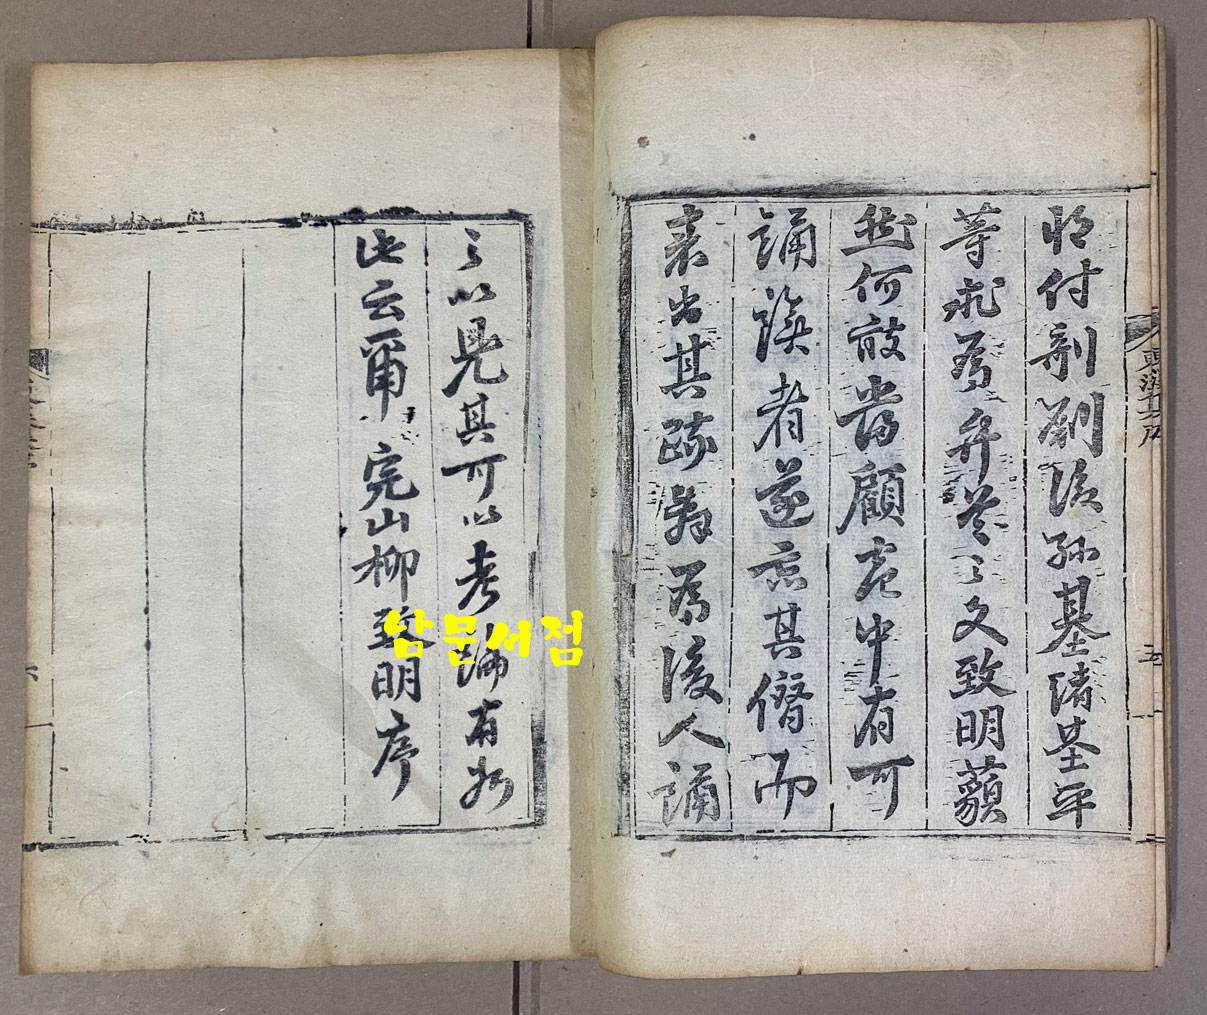 将付剞劂後孫基渚基平
等求爲弁卷之文致明藐
然何敢當顧卷中有可
誦者遂忘其僭而
表出其爲後人誦
之以見其可以考論有如
此云爾 完山柳致明序
五
六
남문서점